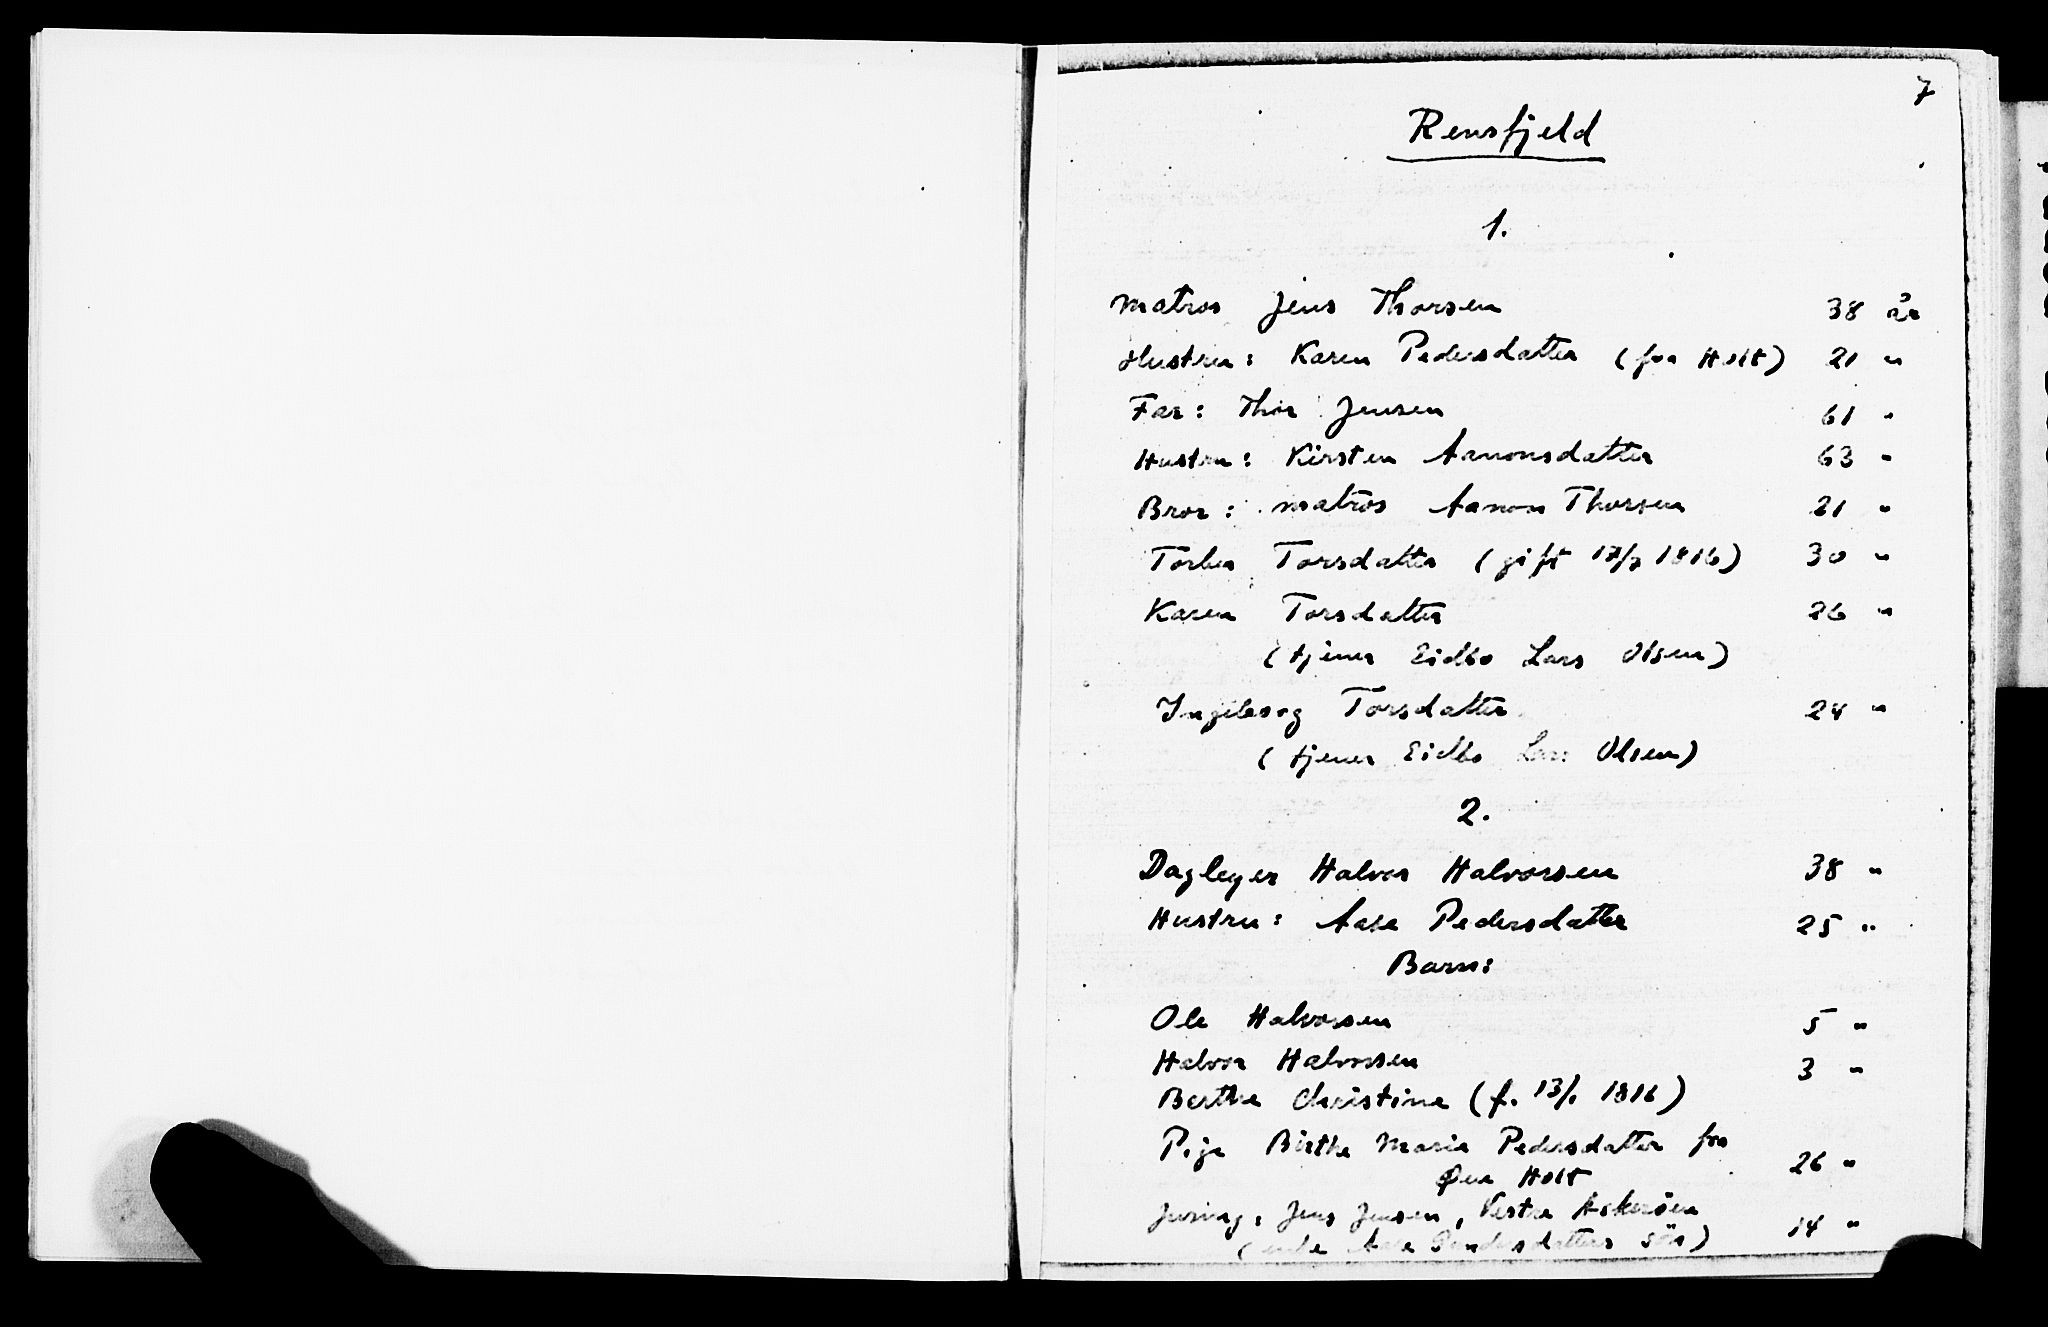 7
Rensfjeld
1.
Matros Jens Thorsen 38 år
Hustru: Karen Pedersdatter (fra Holt) 21 "
Far: Thor Jensen 61 "
Hustru: Kirsten Aanonsdatter 63 "
Bror: matros Aanon Thorsen 21 "
Torbor Torsdatter (gift 17/7 1816) 30 "
Karen Torsdatter 26 "
(tjener Eidbo Lars Olsen)
Ingeborg Torsdatter 24 "
(tjener Eidbo Lars Olsen)
2.
Dagleyer Halvor Halvorsen 38 "
Hustru: Aase Pedersdatter 25 "
Barn:
Ole Halvorsen 5 "
Halvor Halvorsen 3 "
Berthe Christine (f. 13/1 1816)
Pige Birthe Marie Pedersdatter fra 26 "
Øen Holt
Jens Jensen, Vestre Askerøen 14 "
(enke Aase sön)